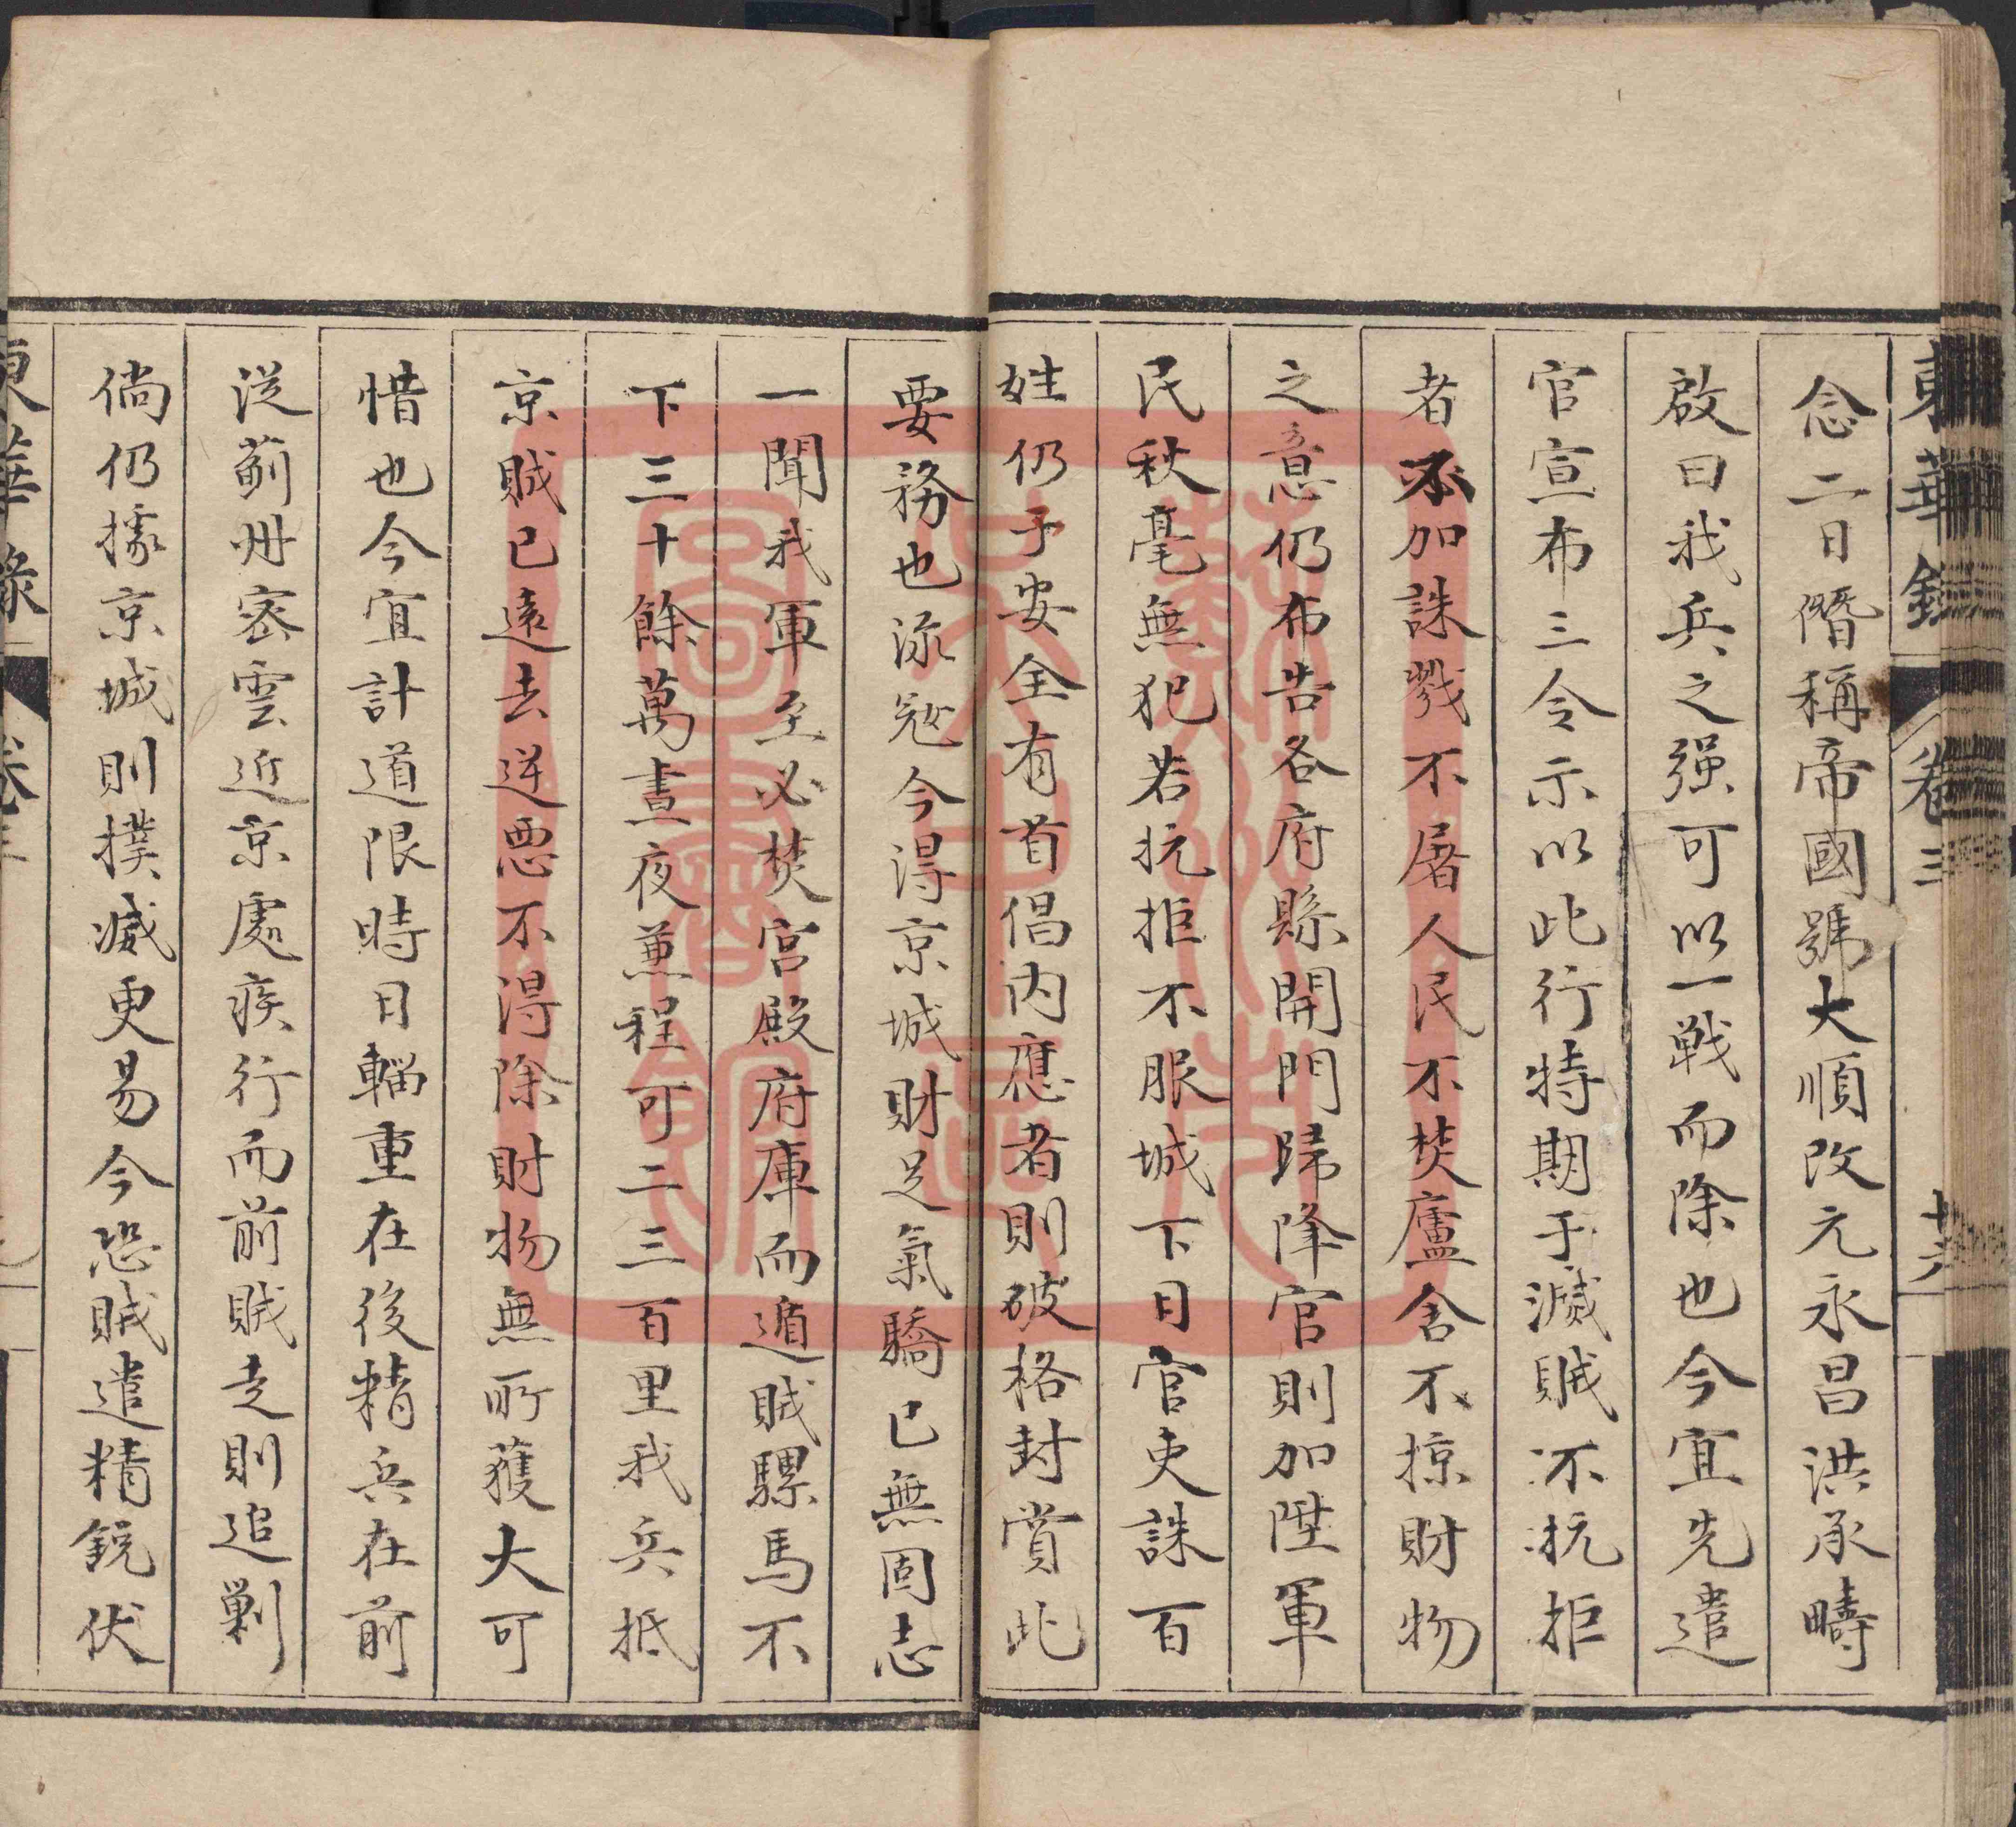 東華錄 卷三
念二日僭稱帝國號大順改元永昌洪承疇
啟曰我兵之强可以一戰而除也今宜先遣
官宣布三令示以此行特期于滅賊不抗拒
者不加誅戮不屠人民不焚廬舍不掠財物
之意仍布告各府縣開門歸降官則加陞軍
民秋毫無犯若抗拒不服城下日官吏誅百
姓仍予安全有首倡内應者則破格封賞此
要務也流寇今得京城財足氣驕已無固志
一聞我軍至必焚宮殿府庫而遁賊騾馬不
下三十餘萬晝夜兼程可二三百里我兵抵
京賊已遠去逆惡不得除財物無所獲大可
惜也今宜計道限時日輜重在後精兵在前
從薊州密雲近京處疾行而前賊走則追剿
倘仍據京城則撲滅更易今恐賊遣精銳伏
東華錄 卷三